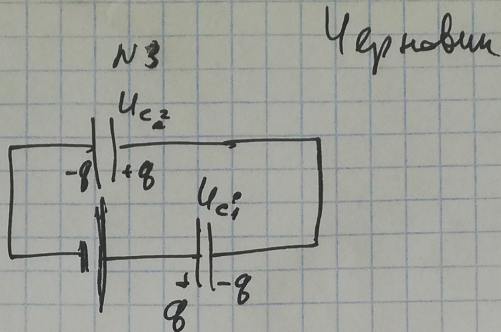 Черновик
N3
Uc₂
-q +q
Uc₁
+ -q
q